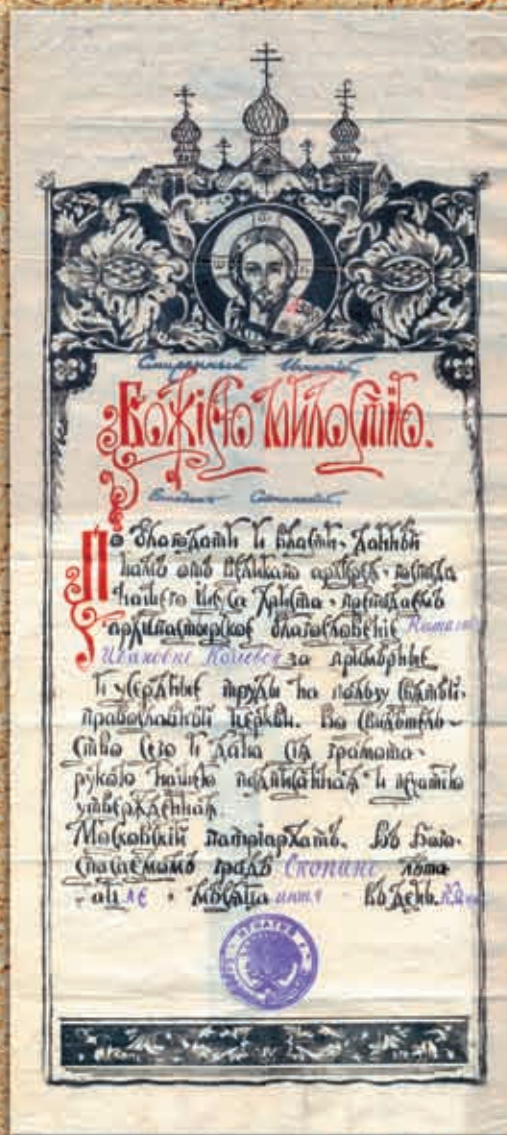 Смиренный Игнатий,
Божіею милостію.
Епископ Скопинский,
По благодати и власти, данной
намъ отъ великаго архіереа, господа
нашего Іисуса Христа, преподаемъ
архипастырское благословеніе
Ивановне за примѣрные
и усердные труды на пользу святой
православной церкви. Во свидѣтель-
ство сего и дана сія грамота,
рукою нашею подписанная и печатію
утвержденная
Московскій патріархатъ. Въ Бого-
спасаемомъ градѣ Скопине лѣта
мѣсяца въ день